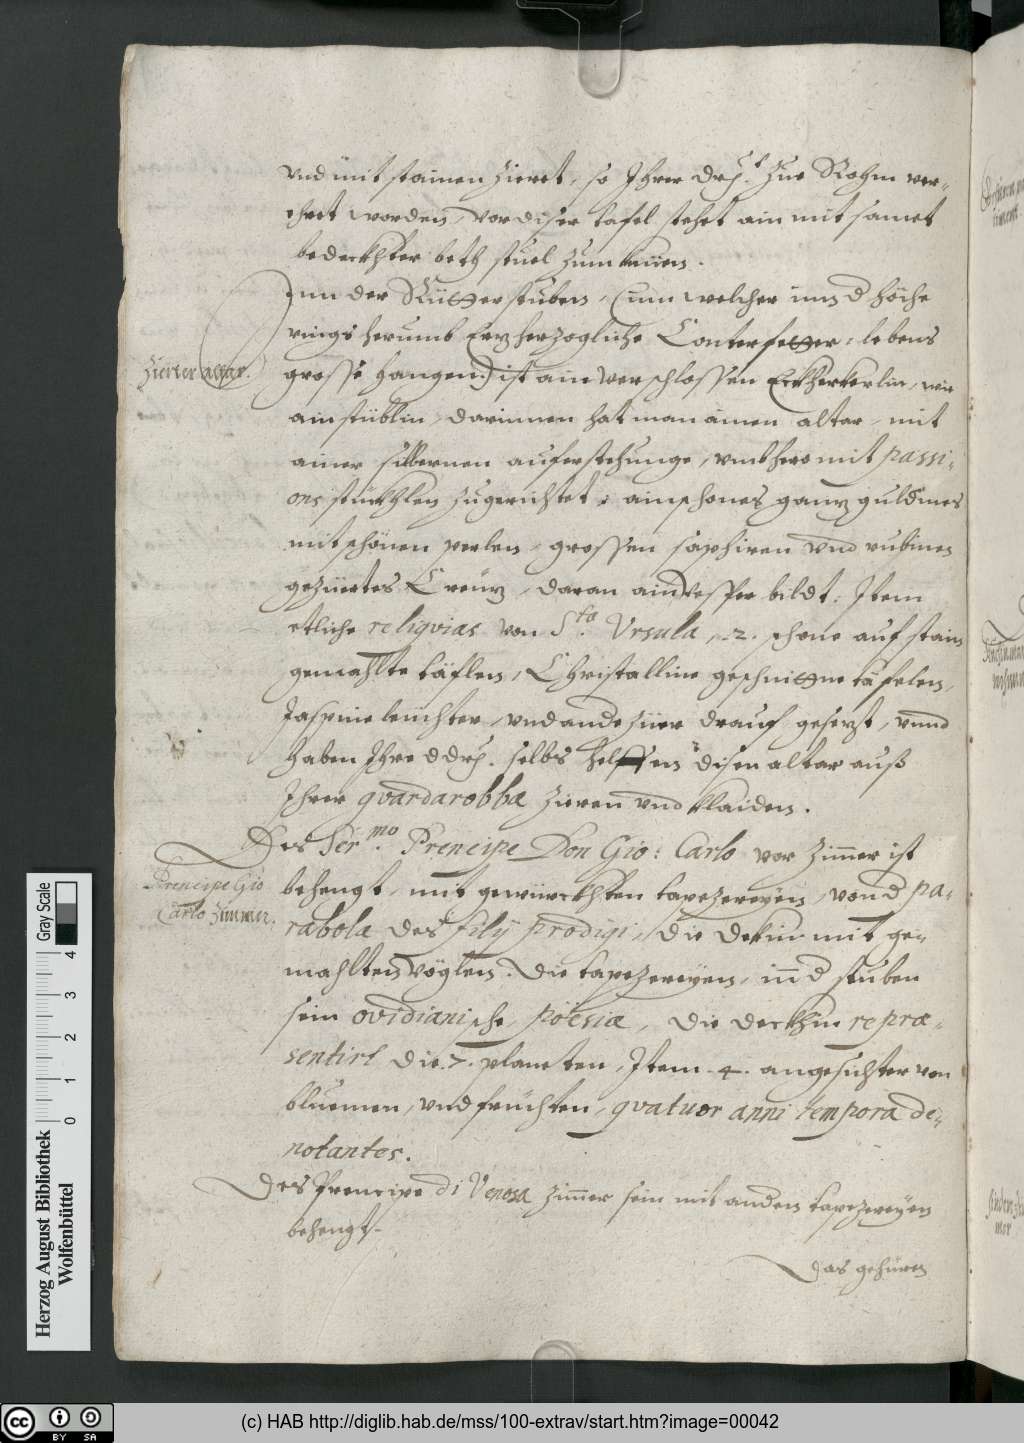 vnd mit stainen zieret, so Ihrer Drh: zue Rohm ver-
ehret worden, vor diser tafel stehet ain mit samet
bedeckhter beth stuel zum knien.
Inn der Ritterstuben, (inn welcher inn d höche
rings herumb Erzherzogliche Conterfetter, lebens
Zierter altar.
grosse hangen) ist ain verschlossen Erkherkerlin, wie
ain stüblin, darinnen hat man ainen altar, mit
ainer silbernen auferstehunge, vmbhero mit passi-
ons stuckhlen zugerichtet, ain schones ganz guldines
mit schönen perlen, grossen saphiren vnd rubinen
geziertes Creüz, daran ain Vesper bildt. Item
etliche reliqvias von Sta. Vrsula, .2. schone auf stain
gemahlte täflen, Christalline geschnittne täfelen,
Jaspine leüchter, vnd ande zier drauf gesezt, vnnd
haben Ihre ddrh. selbs helffen disen altar auß
Ihrer qvardarobbæ zieren vnd klaiden.
Des Sermo. Prencipe Don Gio: Carlo vor Zimmer ist
Prencipe Gio
Carlo Zimmer.
behengt, mit gewürckhten tapezereyen, von d pa-
rabola des filij prodigi, die dekin mit ge-
mahlten vöglen. Die tapezereyen, in d stuben
sein ovidianische poësiæ, die deckhin repræ-
sentirt die .7. planeten, Item .4. angesichter von
bluemen, vnd früchten, qvatuor anni tempora de-
notantes.
Des Prencipe di Venosa zimmer sein mit anden tapezereyen
behengt.
Das gehüren
Herzog August Bibliothek
Wolfenbüttel
0 1 2 3 4
Gray Scale
cc BY SA
(c) HAB http://diglib.hab.de/mss/100-extrav/start.htm?image=00042